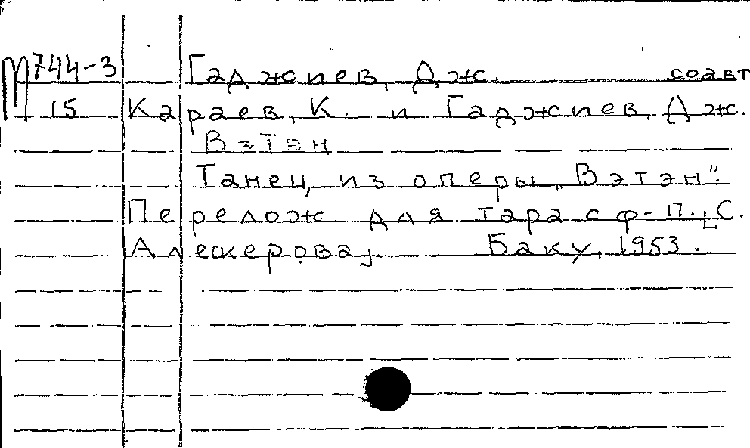 М744-3 Гаджиев, Дж. соавт
15 Караев, К. и Гаджиев, Дж.
Вэтэн
Танец из оперы „Вэтэн".
Перелож для тара с ф-п. [С.
Алескерова]. Баку, 1953.